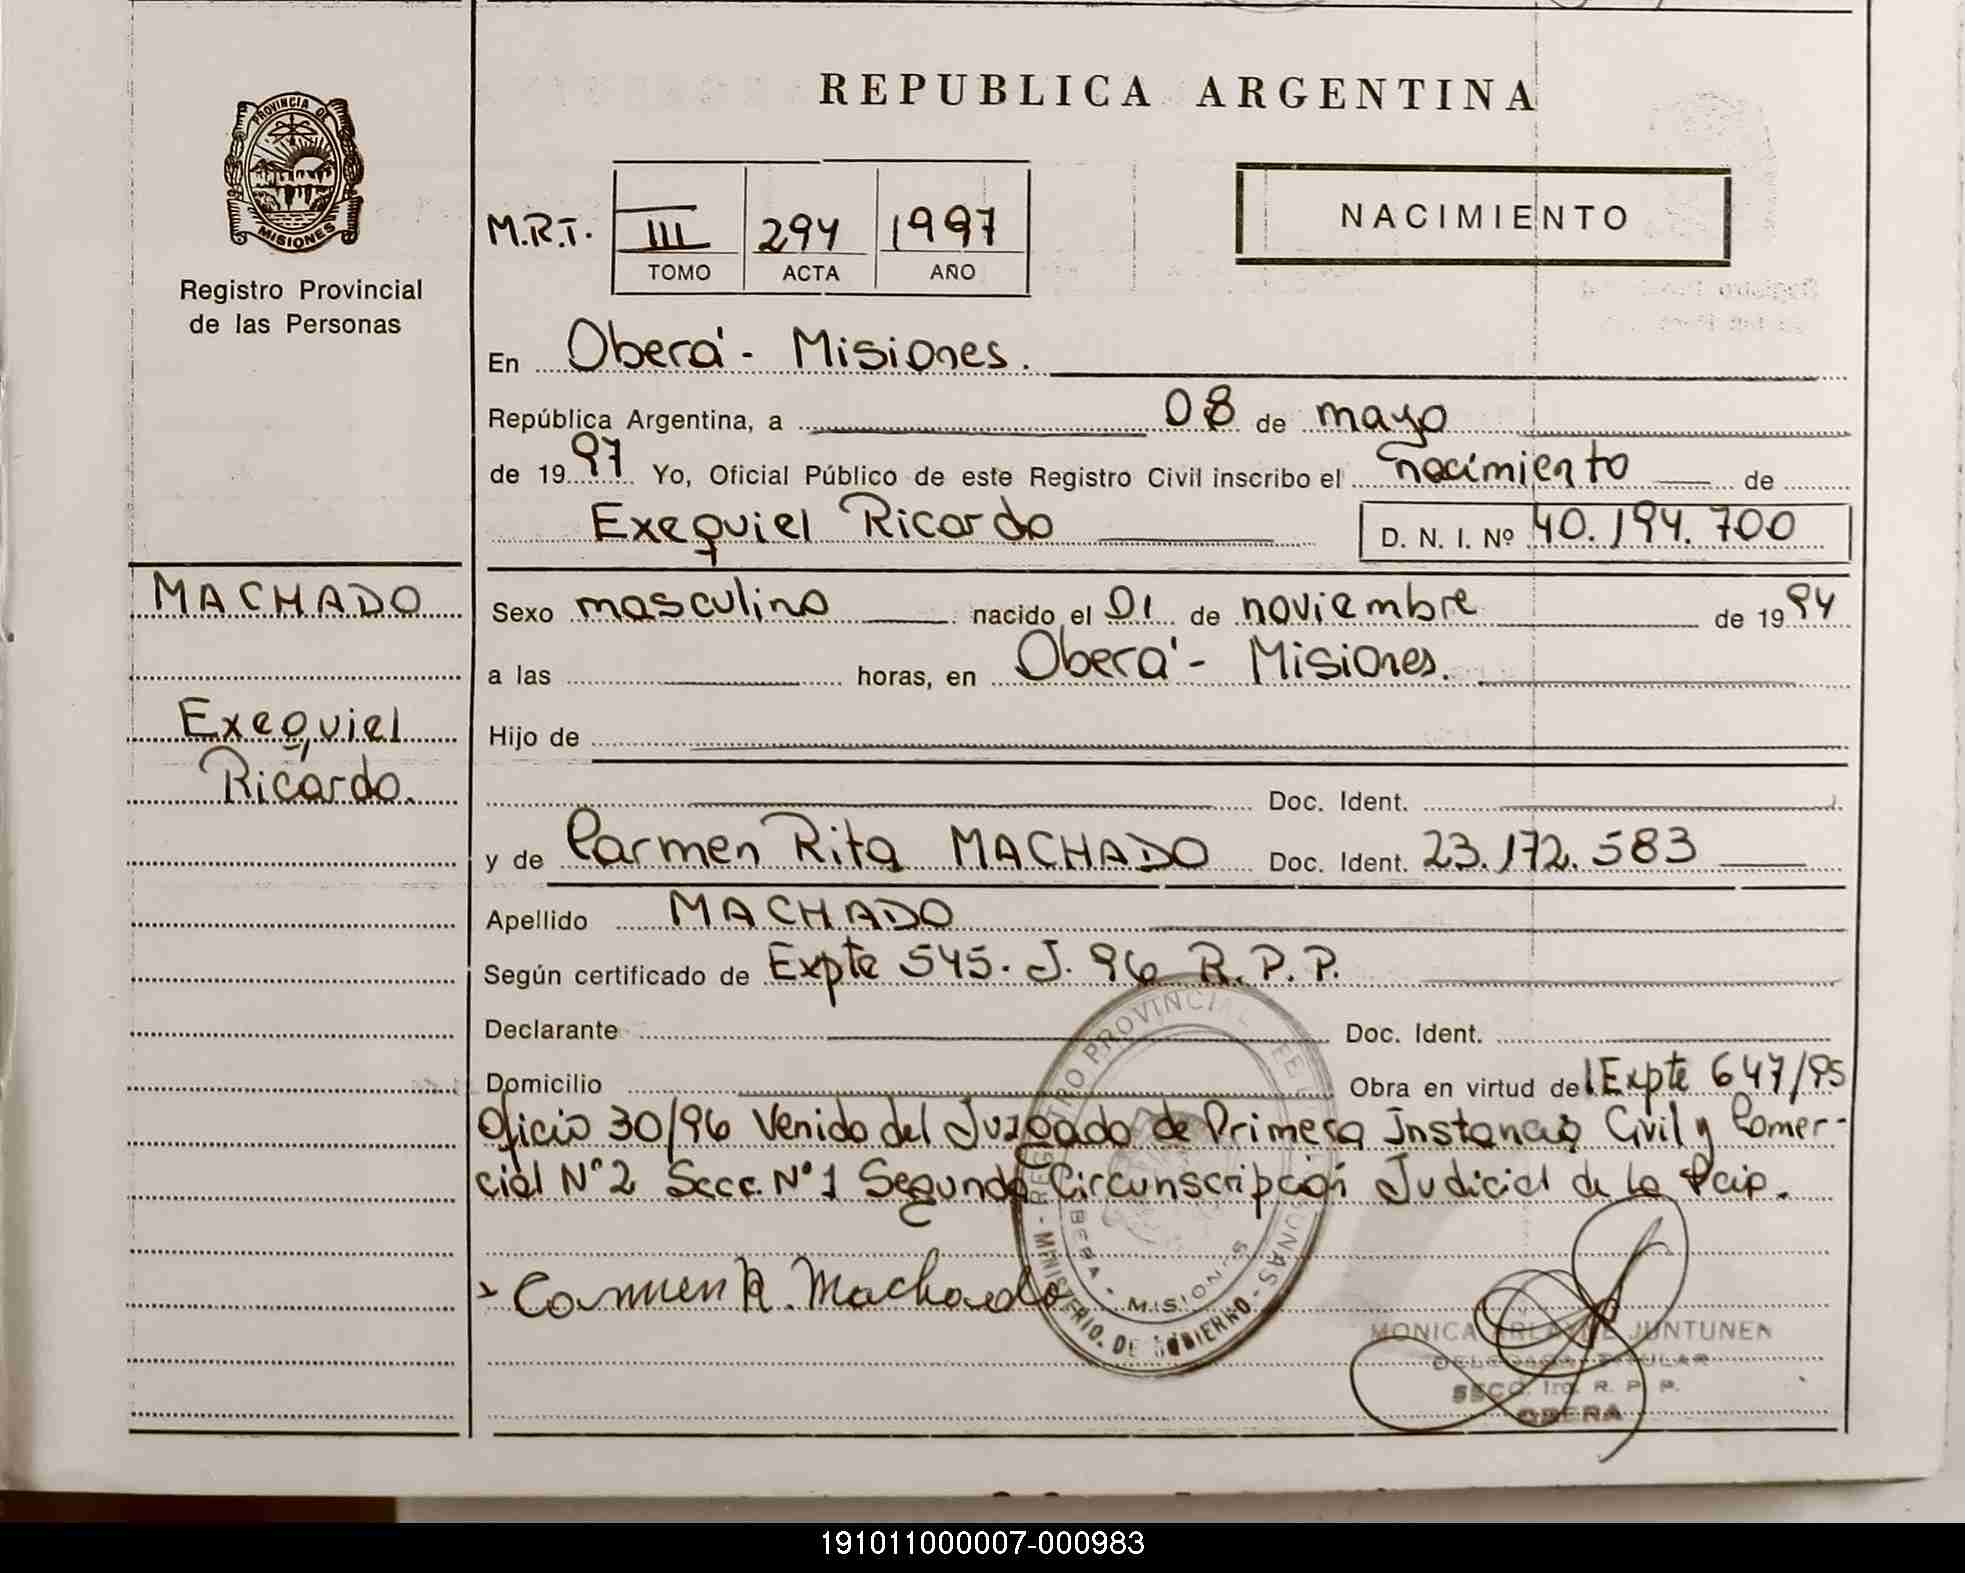 REPUBLICA ARGENTINA
PROVINCIA DE
MISIONES
Registro Provincial
de las Personas
M.R.T. III 294 1997
TOMO ACTA AÑO
NACIMIENTO
En Oberá - Misiones.
República Argentina, a 08 de mayo
de 1997 Yo, Oficial Público de este Registro Civil inscribo el nacimiento de
Exequiel Ricardo D. N. I. Nº 40.194.700
MACHADO
Exequiel
Ricardo.
Sexo masculino nacido el 01 de noviembre de 1994
a las horas, en Oberá - Misiones.
Hijo de
Doc. Ident.
y de Carmen Rita MACHADO Doc. Ident. 23.172.583
Apellido MACHADO
Según certificado de Expte 545. J. 96 R.P.P.
Declarante Doc. Ident.
Domicilio Obra en virtud del Expte 647/95
Oficio 30/96 Venido del Juzgado de Primera Instancia Civil y Comer-
cial Nº 2 Secc. Nº 1 Segunda Circunscripción Judicial de la Pcia.
Carmen R. Machado
REGISTRO PROVINCIAL DE PERSONAS - MINISTERIO DE GOBIERNO -
OBERA - MISIONES
MONICA JUNTUNEN
DELEGADA TITULAR
SECC. 1ra. R. P. P.
OBERA
191011000007-000983